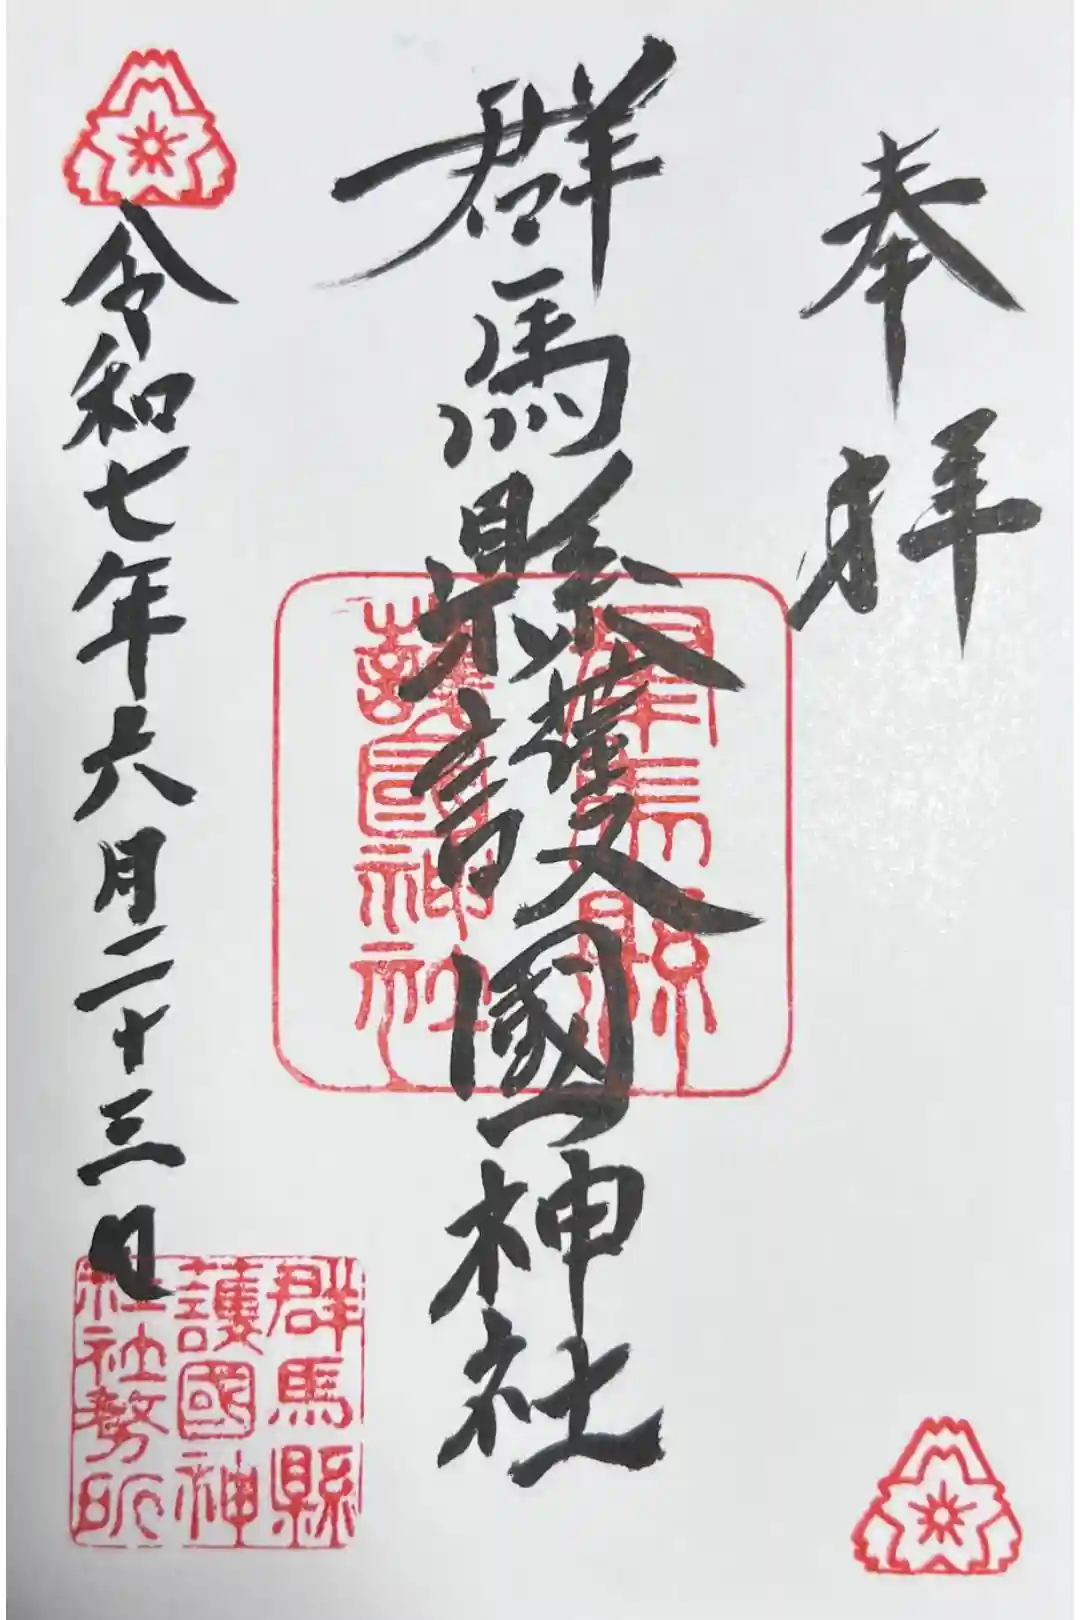 奉拝
群馬縣護國神社
群馬縣
護國神社
令和七年六月二十三日
群馬縣
護國神
社社務所